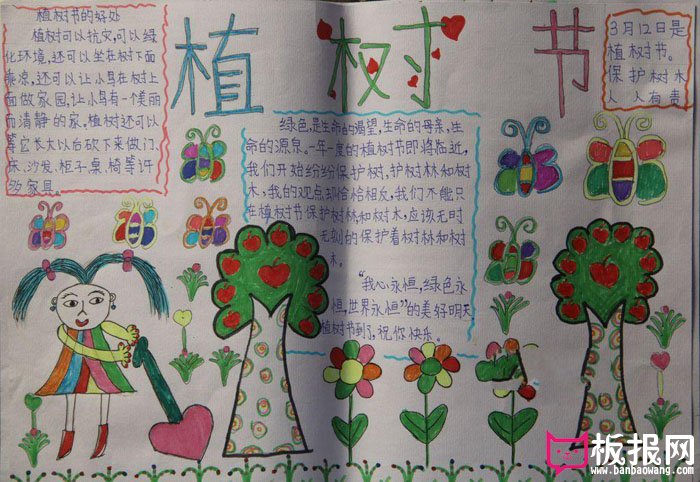 植树节
植树节的好处
植树可以抗灾,可以绿
化环境,还可以坐在树下面
乘凉,还可以让小鸟在树上
面做家园,让小鸟有一个美丽
而清静的家,植树还可以
等它长大以后砍下来做门、
床、沙发、柜子、桌、椅等许
多家具。
3月12日是
植树节。
保护树木
人人有责
绿色,是生命的渴望,生命的母亲,生
命的源泉、一年一度的植树节即将临近,
我们开始纷纷保护树,护树林和树
木,我的观点却恰恰相反,我们不能只
在植树节保护树林和树木,应该无时
无刻的保护着树林和树
木。
“我心永恒,绿色永
恒,世界永恒”的美好明天
植树节到了,祝你快乐。
板报网
www.banbaowang.com